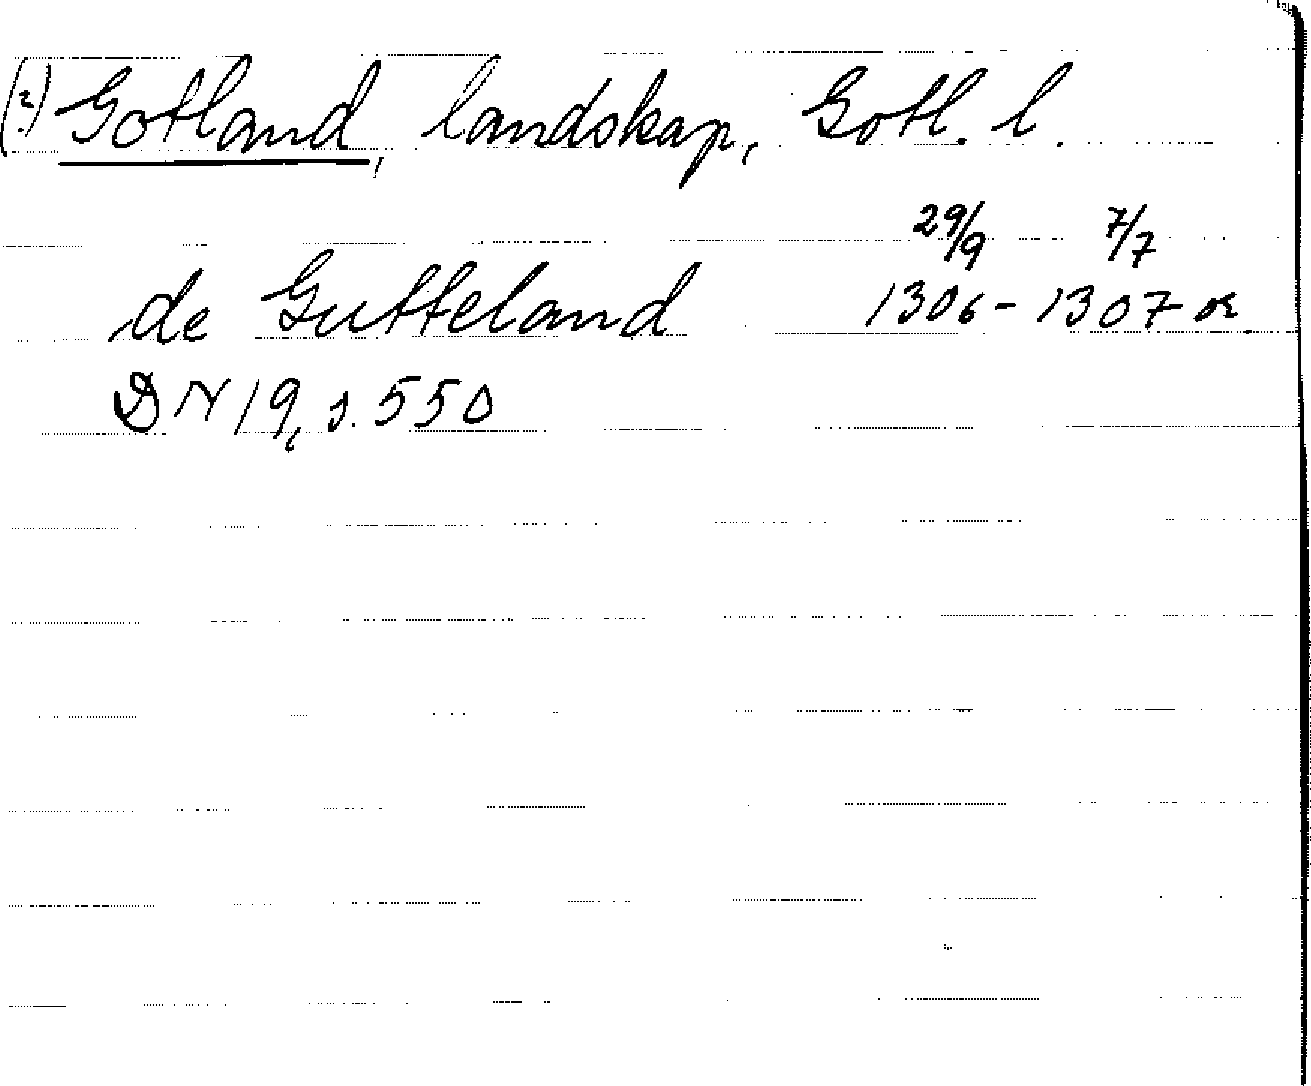 (2) Gotland, landskap, Gotl. l.
29/9 7/7
de Gutteland 1306 - 1307 or.
DN 19, s. 550